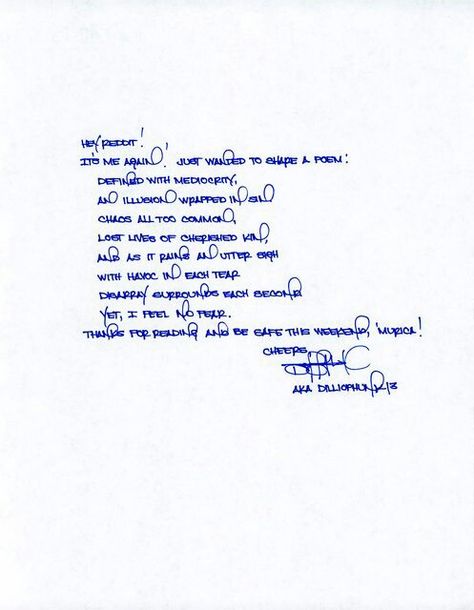 HEY REDDIT!
IT'S ME AGAIN! JUST WANTED TO SHARE A POEM:
DEFINED WITH MEDIOCRITY,
AN ILLUSION WRAPPED IN SIN
CHAOS ALL TOO COMMON,
LOST LIVES OF CHERISHED KIN,
AND AS IT RAINS AN UTTER SIGH
WITH HAVOC IN EACH TEAR
DISARRAY SURROUNDS EACH SECOND
YET, I FEEL NO FEAR.
THANKS FOR READING AND BE SAFE THIS WEEKEND, 'MURICA!
CHEERS,
AKA DILLIOPHUNK13